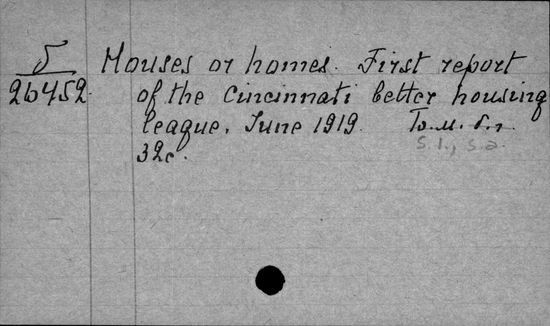 5
26452
Houses or homes. First report
of the Cincinnati better housing
league. June 1919.
32c.
s.l., s.a.